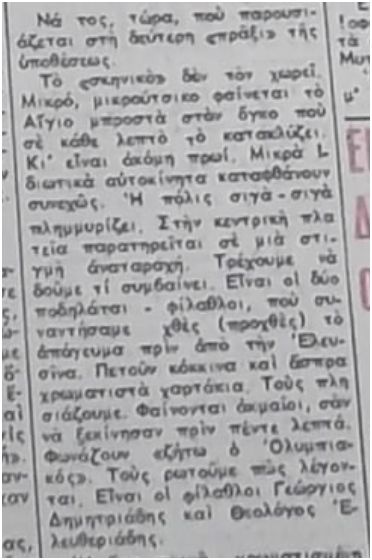 Νά τος, τώρα, ποὺ παρουσι-
άζεται στὴ δεύτερη «πράξι» τῆς
ὑποθέσεως.
Τὸ «σκηνικὸ» δὲν τὸν χωρεῖ.
Μικρό, μικρούτσικο φαίνεται τὸ
Αἴγιο μπροστὰ στὸν ὄγκο ποὺ
σὲ κάθε λεπτὸ τὸ κατακλύζει.
Κι' εἶναι ἀκόμη πρωί. Μικρὰ ἰ
διωτικὰ αὐτοκίνητα καταφθάνουν
συνεχῶς. Ἡ πόλις σιγὰ-σιγὰ
πλημμυρίζει. Στὴν κεντρικὴ πλα
τεῖα παρατηρεῖται σὲ μιὰ στι-
γμὴ ἀναταραχή. Τρέχουμε νὰ
δοῦμε τί συμβαίνει. Εἶναι οἱ δύο
ποδηλάται - φίλαθλοι, ποὺ συ-
ναντήσαμε χθὲς (προχθὲς) τὸ
ἀπόγευμα πρὶν ἀπὸ τὴν Ἐλευ-
σῖνα. Πετοῦν κόκκινα καὶ ἄσπρα
χρωματιστὰ χαρτάκια. Τοὺς πλη
σιάζουμε. Φαίνονται ἀκμαῖοι, σὰν
νὰ ξεκίνησαν πρὶν πέντε λεπτά.
Φωνάζουν «ζήτω ὁ Ὀλυμπια-
κός». Τοὺς ρωτοῦμε πῶς λέγον-
ται. Εἶναι οἱ φίλαθλοι Γεώργιος
Δημητριάδης καὶ Θεολόγος Ἐ-
λευθεριάδης.